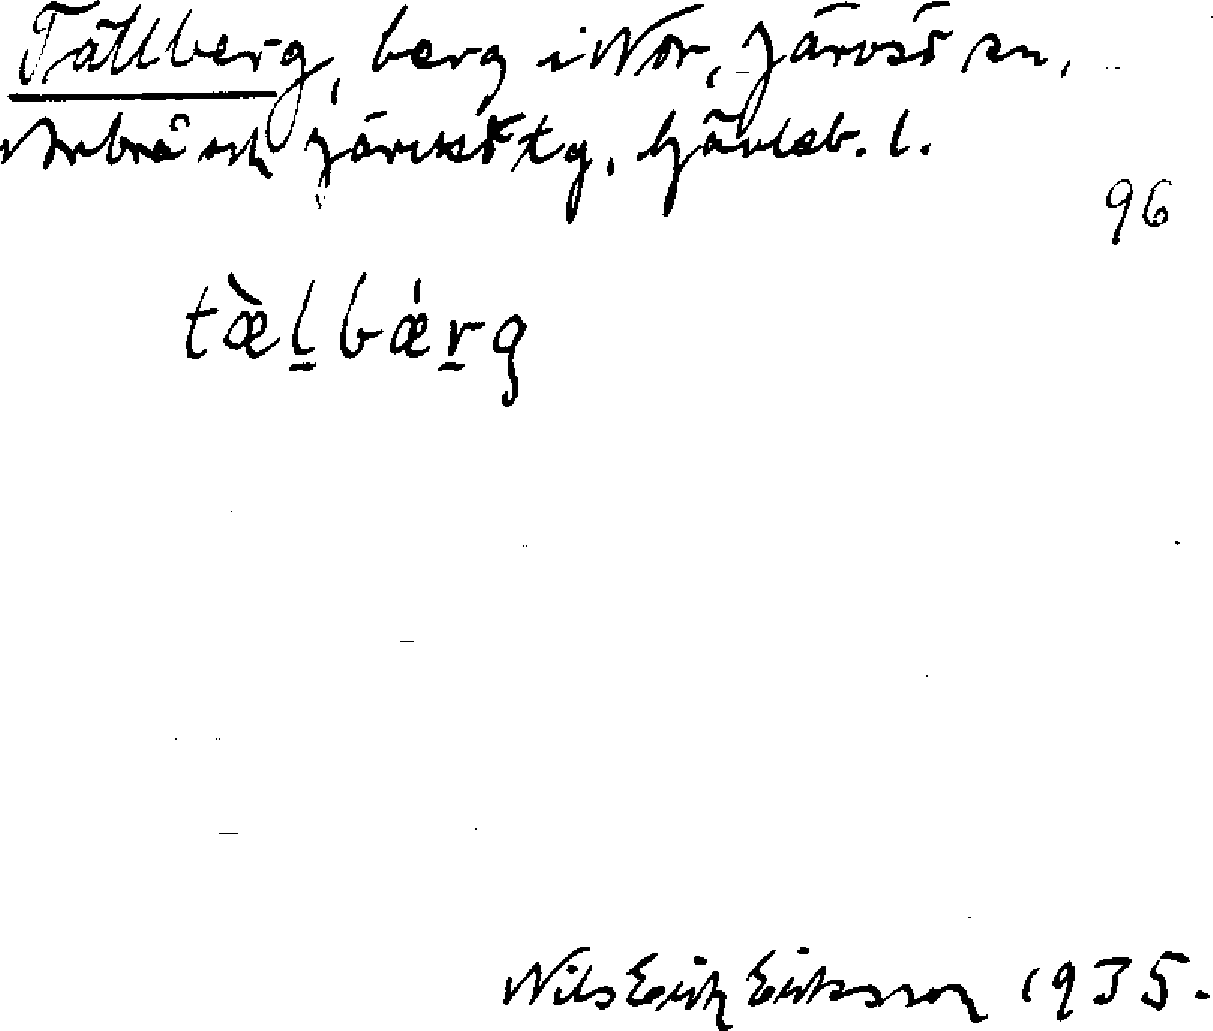 Tällberg, berg i Nor, Järvsö sn,
Arbrå och Järvsö tg, Gävleb. l.
96
tæ̀l̠bǽr̠g
Nils Erik Eriksson 1935.